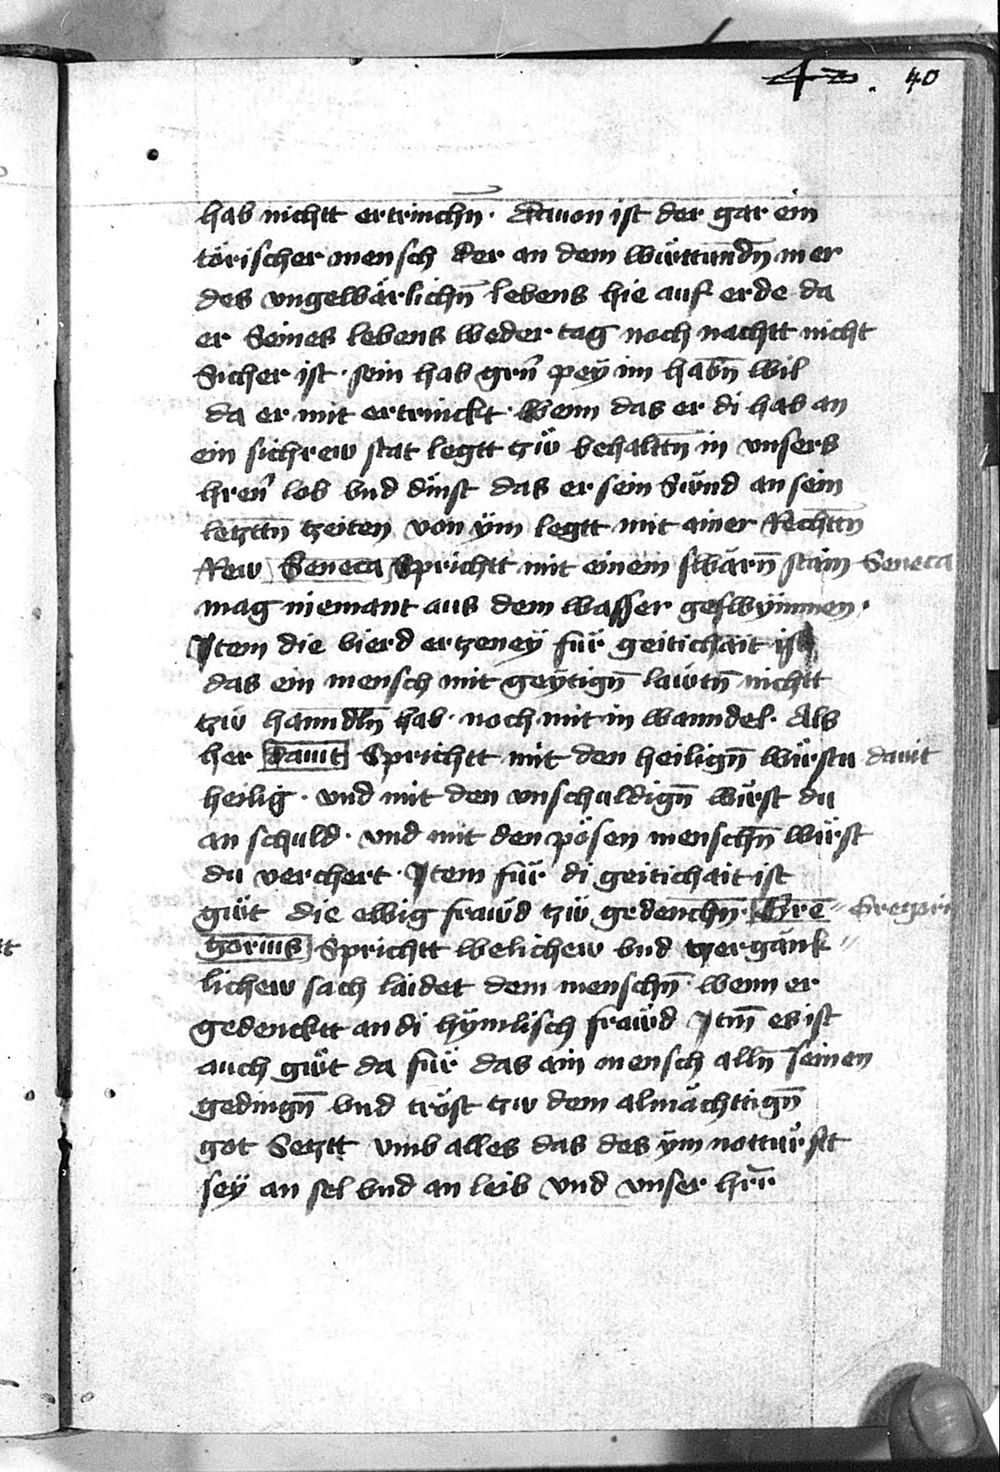 42. 40
hab nichtt ertrinchn̄. Dauon ist der gar ein
törischer mensch der an dem wüttundn̄ mer
des vngewärlichn̄ lebens hie auf erde da
er Seines lebens weder tag noch nachtt nicht
Sicher ist. sein hab grn̄ peÿ im habn̄ wil
da er mit ertrinckt. Wenn das er di hab an
ein sichrew stat legtt tzw̎ behaltn̄ in vnsers
hren̄ lob vnd dinst das er sein Sünd an sein
letzttn̄ tzeiten von ÿm legtt mit ainer Rechttn̄
Rew Seneca Sprichtt mit einem swärn̄ stain Seneca
mag niemant aus dem wasser geswÿmmen.
Item die vierd ertzeneÿ für geitichait ist
das ein mensch mit geÿtign̄ lawtn̄ nichtt
tzw hanndln̄ hab. noch mit in wanndel. Als
her dauit Sprichtt mit den heilign̄ würstu dauit
heilig. vnd mit den vnschuldign̄ würst du
an schuld. vnd mit den pösen menschn̄ würst
du verchert. Item für di geitichait ist
güt die ewig frawd tzw̎ gedenchn̄. Gre⸗ Gregori
gorius Sprichtt welichew vnd tzergänk⸗
lichew sach laidet dem menschn̄. wenn er
gedencktt an di hÿmlisch frawd Itm̄ es ist
auch güt da für das ain mensch alln̄ seinen
gedingn̄ vnd tröst tzw dem almächttign̄
got Setztt vmb alles das des ÿm notturftt
seÿ an sel vnd an leib vnd vnser hrr̄